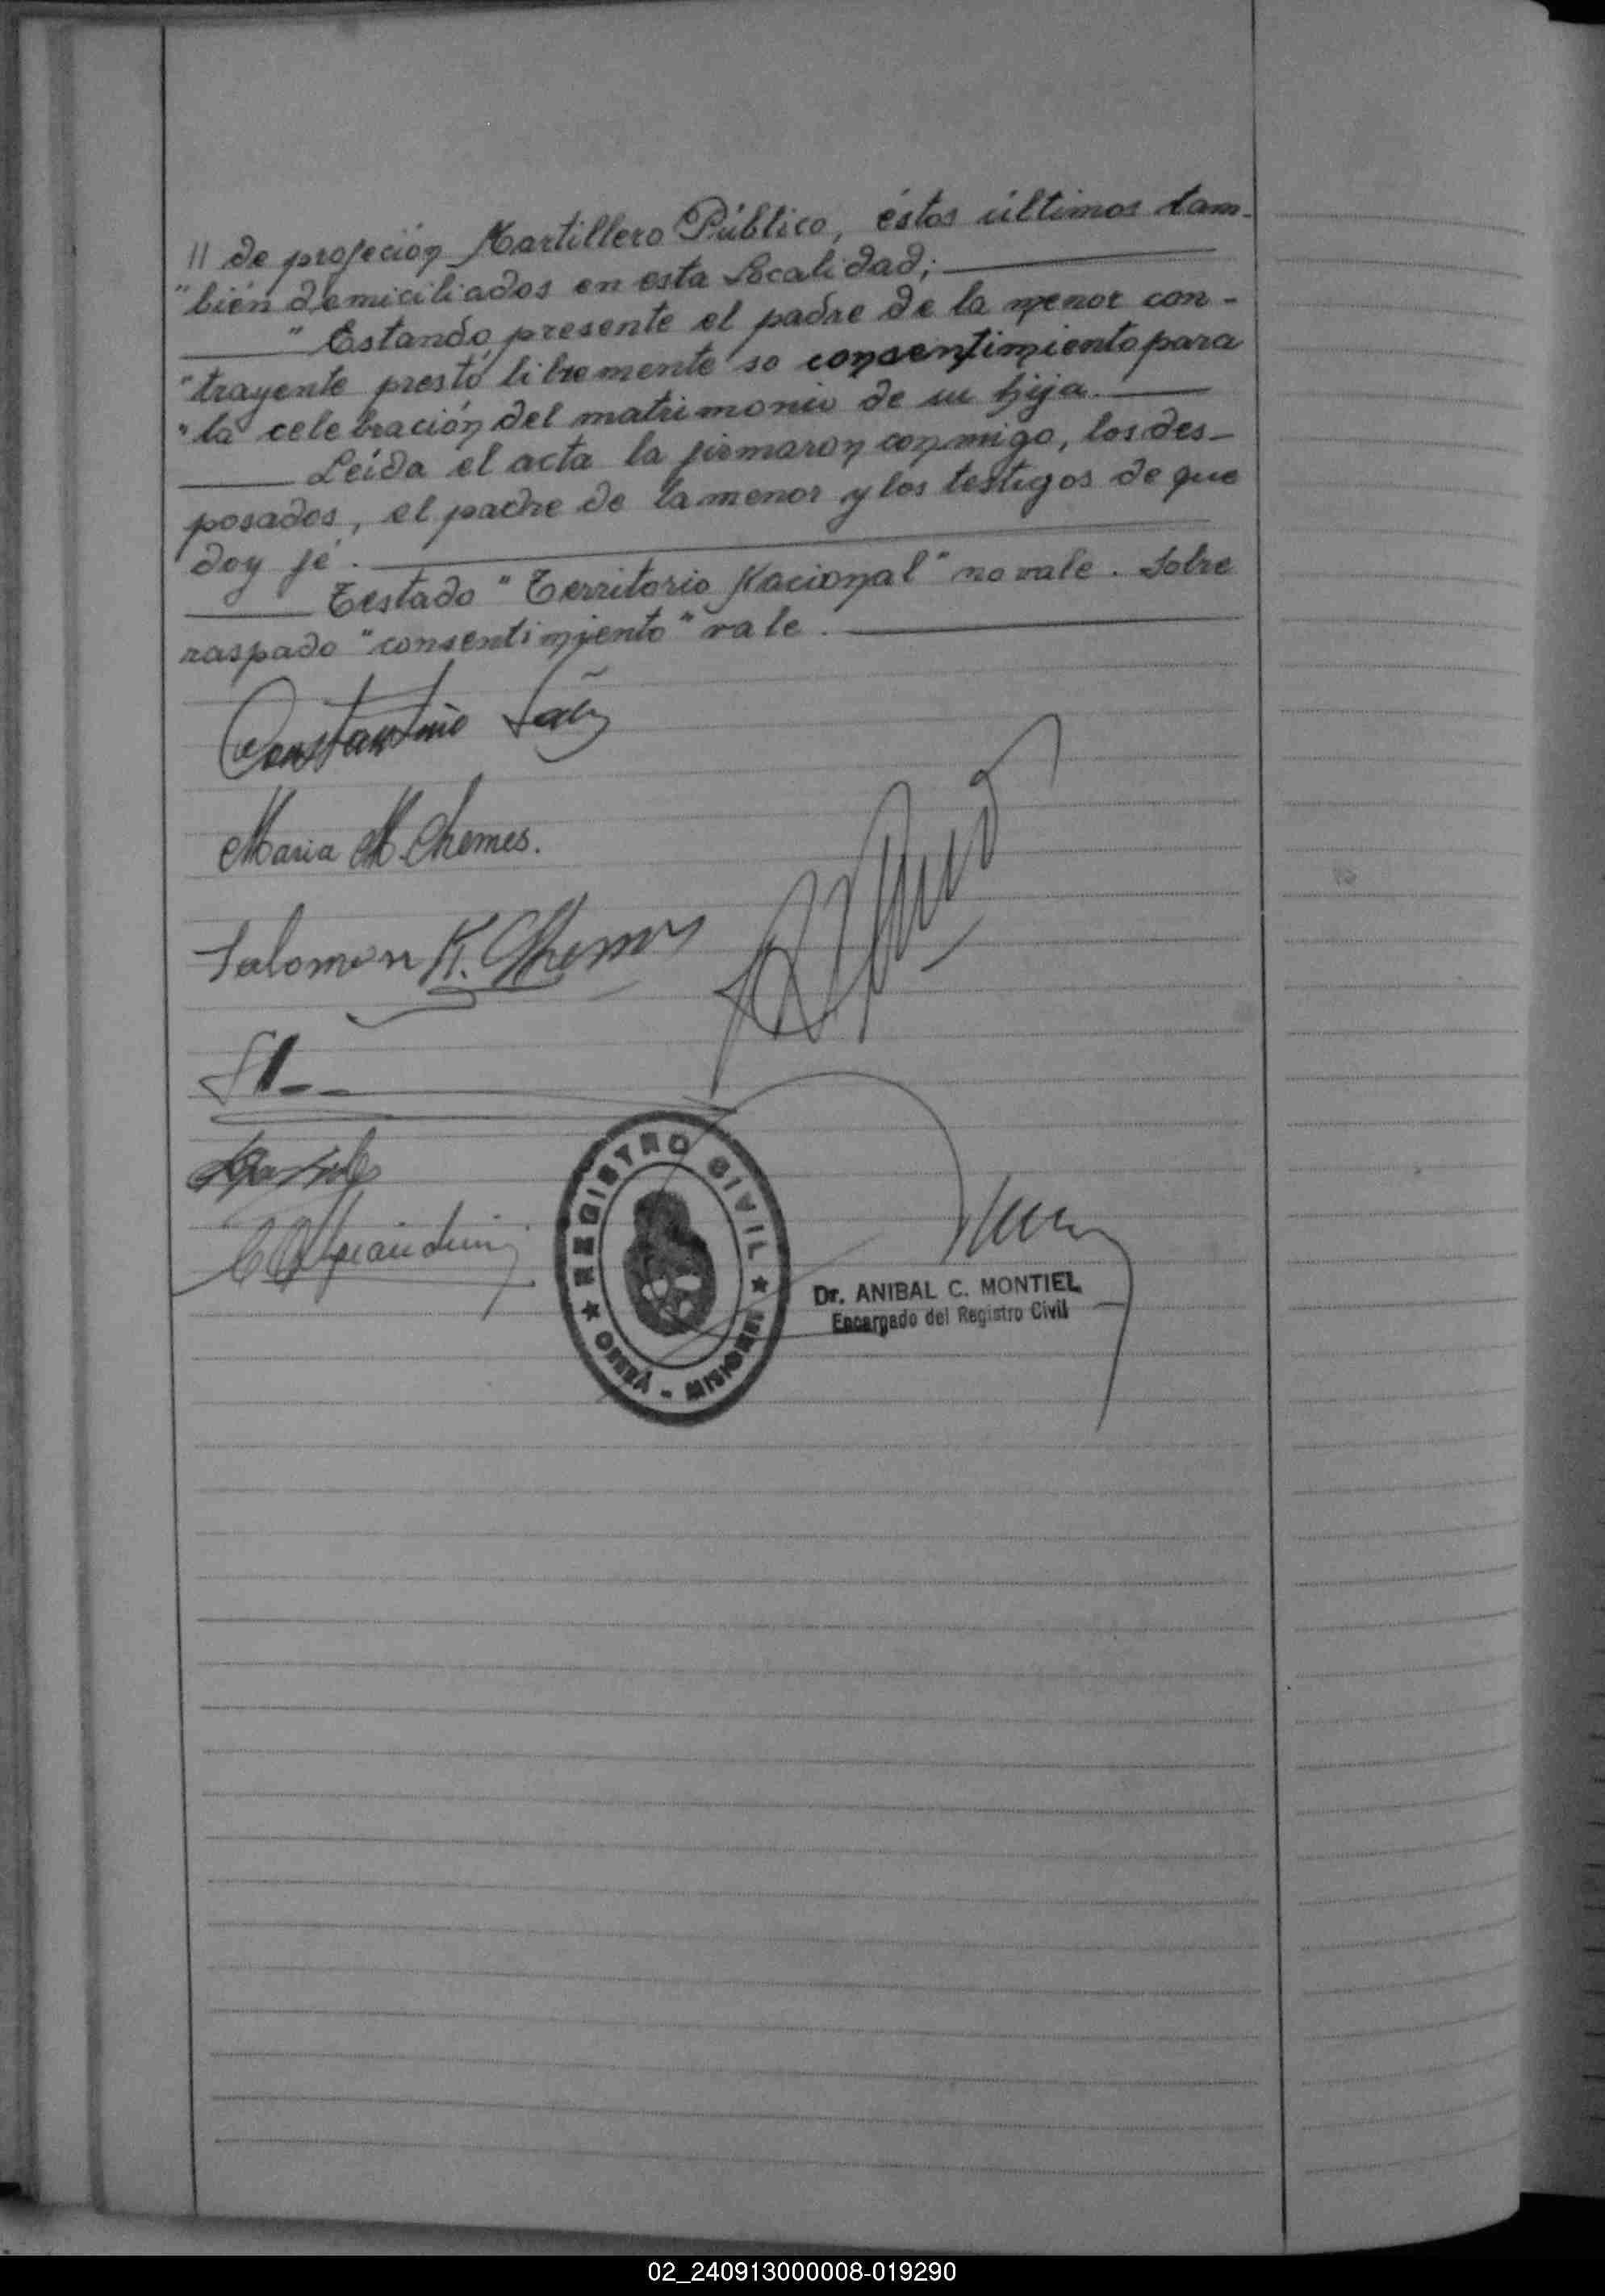 // de profeción Martillero Público, éstos últimos tam-
"bién domiciliados en esta Localidad;
" Estando presente el padre de la menor con-
"trayente prestó libremente so consentimiento para
"la celebración del matrimonio de su hija.
Leída el acta la firmaron conmigo, los des-
posados, el padre de la menor y los testigos de que
doy fé.
Testado "Territorio Nacional" no vale. Sobre
raspado "consentimiento" vale.
Constantino
Maria M. Chemes.
Salomon K. Chemes
REGISTRO CIVIL
OBERÁ - MISIONES
Dr. ANIBAL C. MONTIEL
Encargado del Registro Civil
02_240913000008-019290